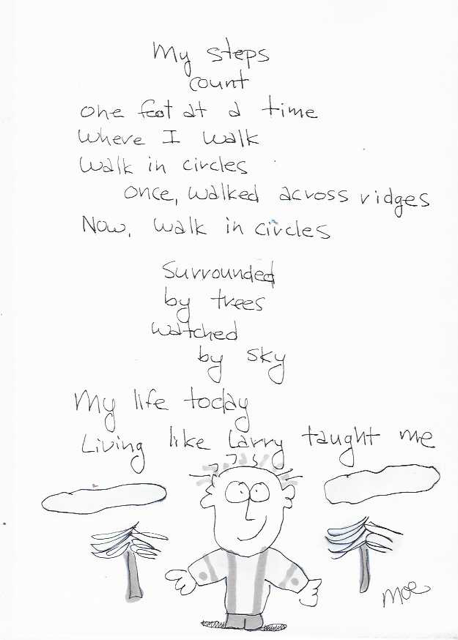 My steps
count
one foot at a time
Where I walk
Walk in circles
once, walked across ridges
Now, walk in circles
Surrounded
by trees
watched
by sky
My life today
Living like Larry taught me
Moe